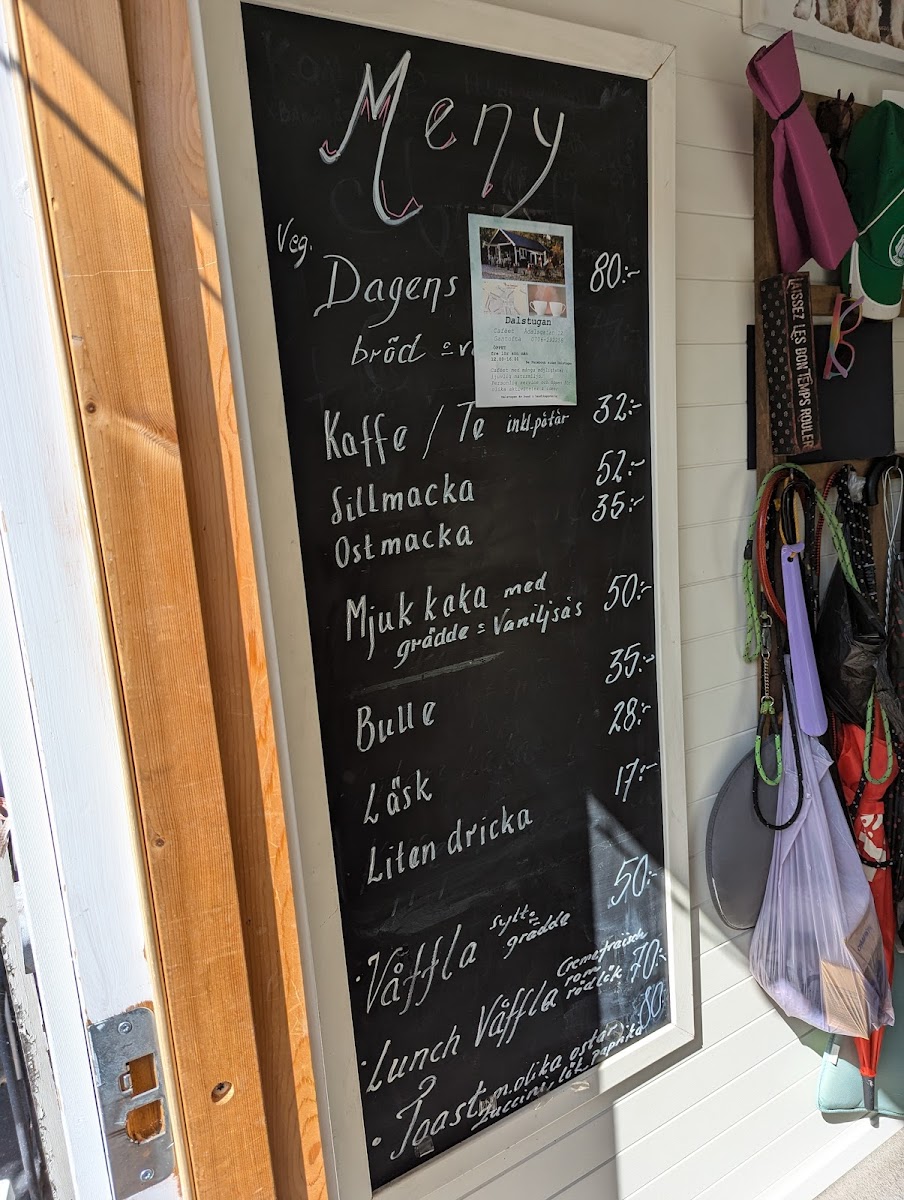 Meny
Veg.
Dagens 80:-
bröd
Kaffe / Te inkl. påtår 32:-
Sillmacka 52:-
Ostmacka 35:-
Mjuk kaka med 50:-
grädde = Vaniljsås
Bulle 35:-
28:-
Läsk
17:-
Liten dricka
Våffla sylt = 50:-
grädde
Lunch Våffla Cremefraische 70:-
rom
rödlök
Toast m. olika ostar 80:-
Zuccini, lök, Paprika
Dalstugan
LAISSEZ LES BON TEMPS ROULER